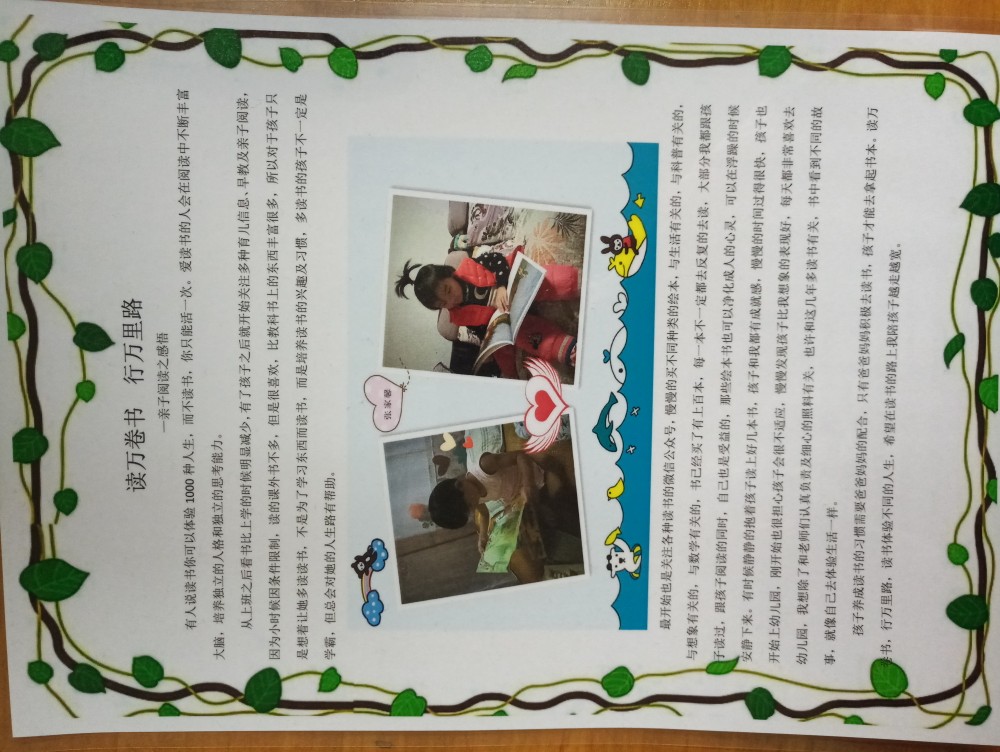 读万卷书 行万里路
—亲子阅读之感悟
有人说读书你可以体验 1000 种人生，而不读书，你只能活一次。爱读书的人会在阅读中不断丰富
大脑，培养独立的人格和独立的思考能力。
从上班之后看书比上学的时候明显减少，有了孩子之后就开始关注多种育儿信息、早教及亲子阅读，
因为小时候因条件限制，读的课外书不多，但是很喜欢，比教科书上的东西丰富很多，所以对于孩子只
是想着让她多读读书，不是为了学习东西而读书，而是培养读书的兴趣及习惯，多读书的孩子不一定是
学霸，但总会对她的人生路有帮助。
张家馨
最开始也是关注各种读书的微信公众号，慢慢的买不同种类的绘本，与生活有关的，与科普有关的，
与想象有关的，与数学有关的，书已经买了有上百本，每一本不一定都去反复的去读，大部分我都跟孩
子读过，跟孩子阅读的同时，自己也是受益的，那些绘本书也可以净化成人的心灵，可以在浮躁的时候
安静下来。有时候静静的抱着孩子读上好几本书，孩子和我都有成就感，慢慢的时间过得很快，孩子也
开始上幼儿园，刚开始也很担心孩子会很不适应，慢慢发现孩子比我想象的表现好，每天都非常喜欢去
幼儿园，我想除了和老师们认真负责及细心的照料有关，也许和这几年多读书有关，书中看到不同的故
事，就像自己去体验生活一样。
孩子养成读书的习惯需要爸爸妈妈的配合，只有爸爸妈妈积极去读书，孩子才能去拿起书本，读万
卷书，行万里路，读书体验不同的人生，希望在读书的路上我陪孩子越走越宽。